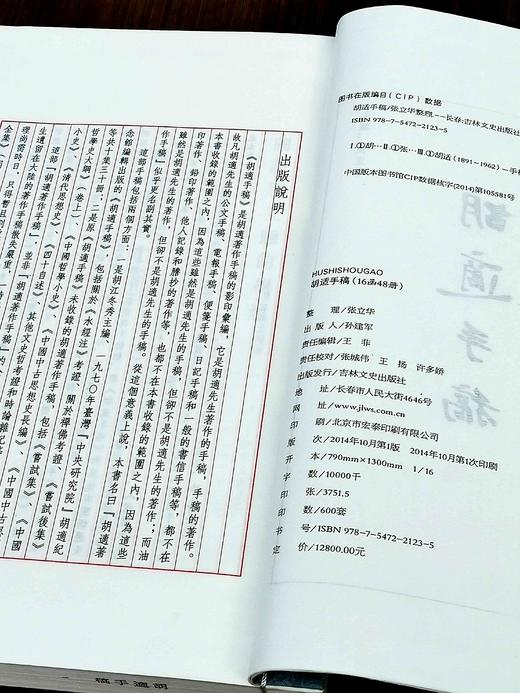 图书在版编目(CIP)数据
胡适手稿/张立华整理.--长春:吉林文史出版社
ISBN 978-7-5472-2123-5
Ⅰ.①胡…Ⅱ.①张…Ⅲ.①胡适(1891~1962)—手稿
中国版本图书馆CIP数据核字(2014)第105581号
胡適手稿
HUSHISHOUGAO
胡适手稿(16函48册)
整 理/张立华
出 版 人/孙建军
责任编辑/王 非
责任校对/张城伟 王 扬 许多娇
出版发行/吉林文史出版社
地 址/长春市人民大街4646号
网 址/www.jlws.com.cn
印 刷/北京市宏泰印刷有限公司
版 次/2014年10月第1版 2014年10月第1次印刷
开 本/790mm×1300mm 1/16
字 数/10000千
印 张/3751.5
印 数/600套
书 号/ISBN 978-7-5472-2123-5
定 价/12800.00元
出版說明
《胡適手稿》是胡適著作手稿的影印彙編，它是胡適先生著作的手稿，手稿的著作。
故凡胡適先生的公文手稿、電報手稿、便箋手稿、日記手稿和一般的書信手稿等，都不在
本書收錄的範圍之內，因為這些雖然是胡適先生的手稿，但卻不是胡適先生的著作；而油
印著作、鉛印著作、他人記錄和謄抄的著作等，也都不在本書收錄的範圍之內，因為這些
雖然是胡適先生的著作，但卻不是胡適先生的手稿。從這個意義上說，本書名曰《胡適著
作手稿》似乎更名副其實。
這部手稿包括兩個方面：一是胡江冬秀主編、一九七〇年臺灣「中央研究院」胡適紀
念館編輯出版的《胡適手稿》，包括關於《水經注》考證、關於禪佛考證、
等共十集三十冊；二是原《胡適手稿》未收錄的胡適著作手稿，包括《嘗試集》《嘗試後集》
哲學史大綱》（卷上）、《中國哲學小史》、《中國中古思想史長編》、《中國
小史》、《清代思想史》、《四十自述》、其他文史哲考證和時論雜記
這部《胡適著作手稿》，並非《胡適著作手稿》的
生遺留在大陸的著作手稿散失嚴重，一時
理尚需時日，只得暫且
全集》
胡適手稿